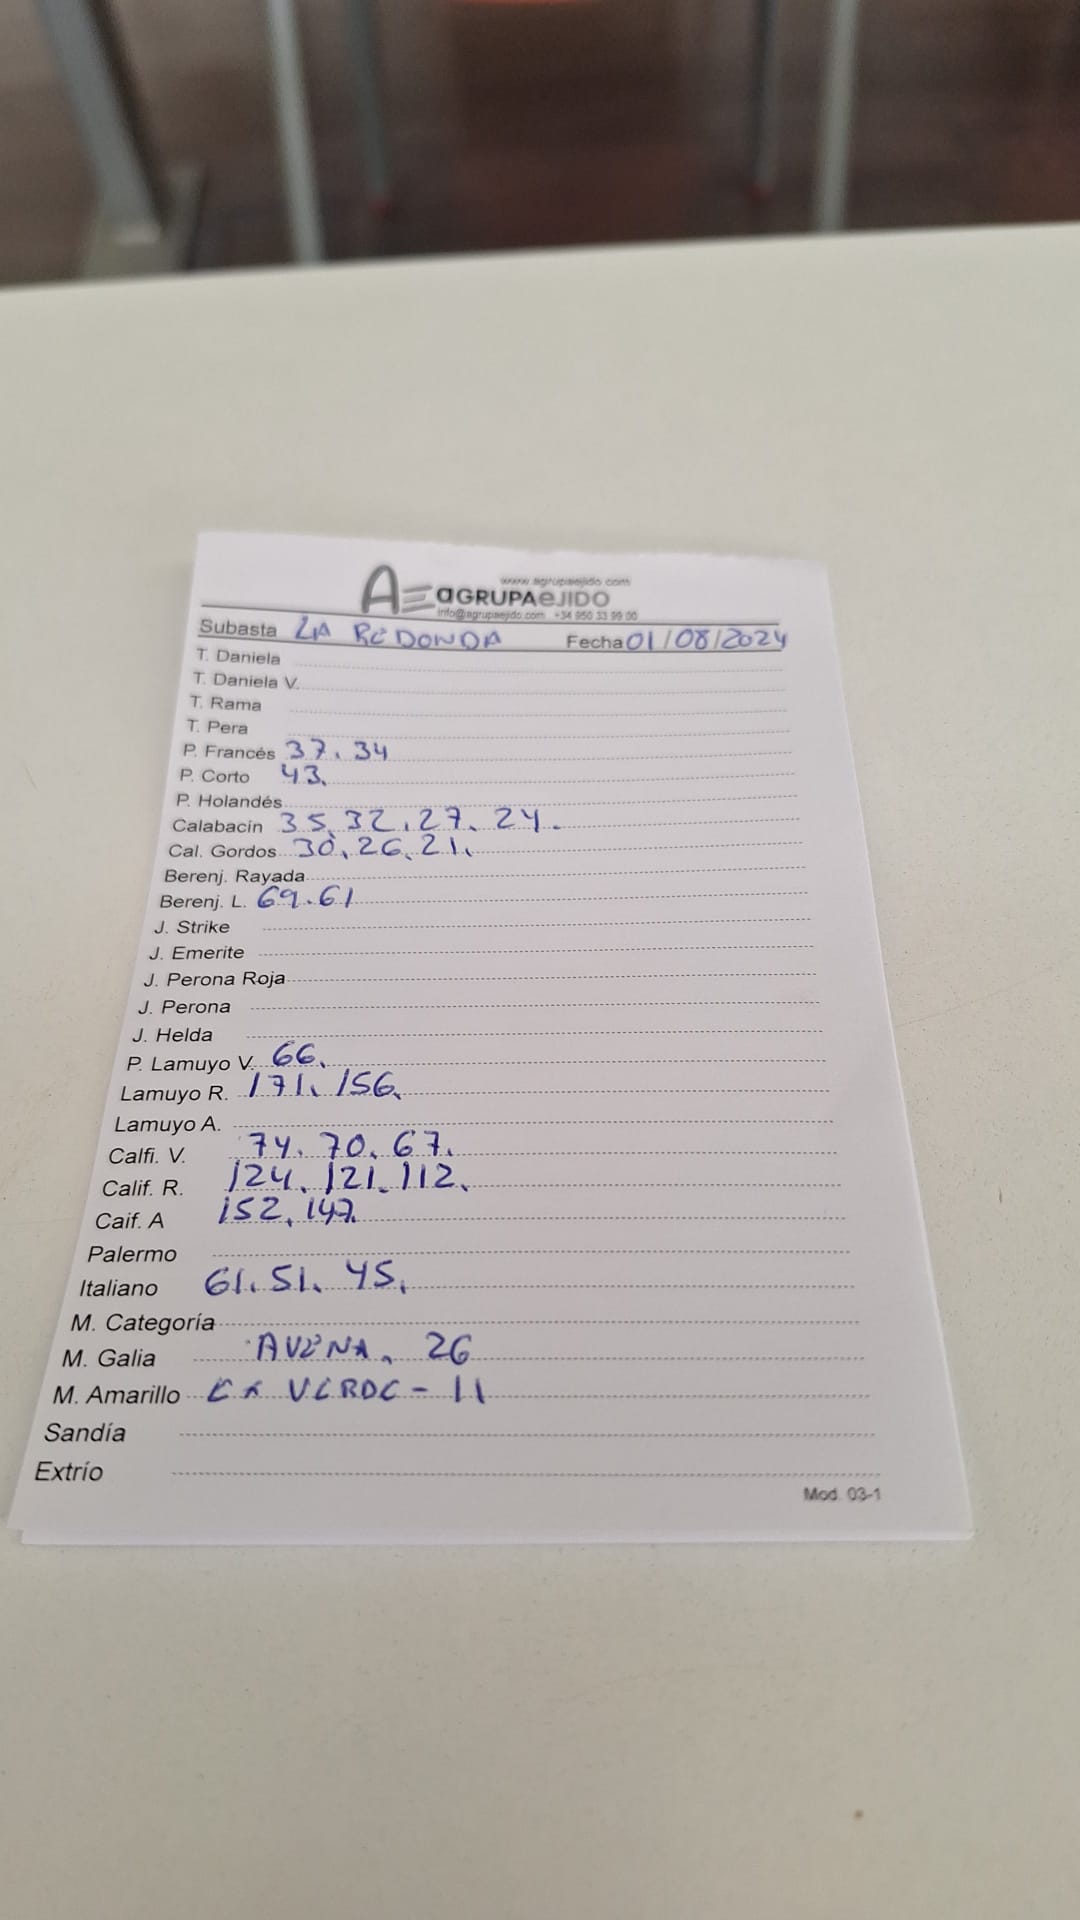 www.agrupaejido.com
AE aGRUPAeJIDO
info@agrupaejido.com +34 950 33 99 00
Subasta LA REDONDA Fecha 01/08/2024
T. Daniela
T. Daniela V.
T. Rama
T. Pera
P. Francés 37. 34
P. Corto 43.
P. Holandés
Calabacín 35. 32. 27. 24.
Cal. Gordos 30. 26. 21.
Berenj. Rayada
Berenj. L. 69. 61
J. Strike
J. Emerite
J. Perona Roja
J. Perona
J. Helda
P. Lamuyo V. 66.
Lamuyo R. 171. 156.
Lamuyo A.
Calfi. V. 74. 70. 67.
Calif. R. 124. 121. 112.
Caif. A 152. 147.
Palermo
Italiano 61. 51. 45.
M. Categoría
M. Galia AVENA. 26
M. Amarillo Ex VERDE - 11
Sandía
Extrío
Mod. 03-1